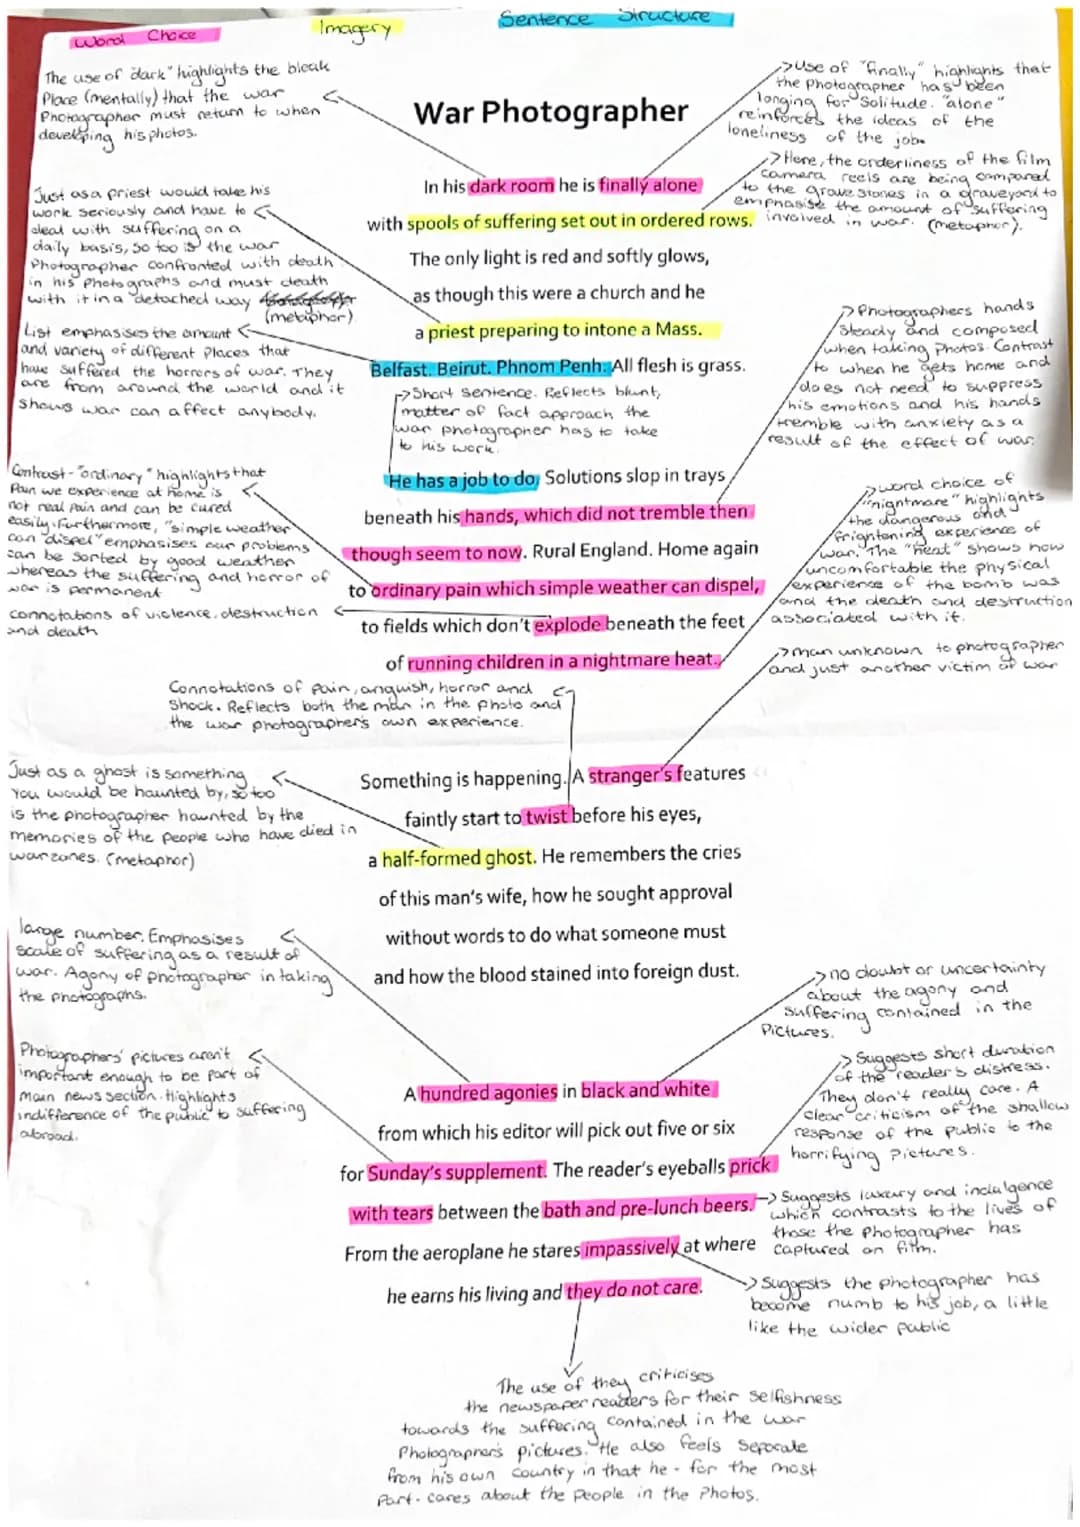 Word Choice
Imagery
Sentence Structure
The use of "dark" highlights the bleak
Place (mentally) that the war
Photographer must return to when
developing his photos.
War Photographer
>Use of "finally" highlights that
the Photographer has been
longing for solitude. "alone"
reinforces the ideas of the
loneliness of the job.
>Here, the orderliness of the film
camera reels are being compared
to the grave stones in a graveyard to
emphasise the amount of suffering
involved in war. (metaphor).
Just as a priest would take his
work seriously and have to
deal with suffering on a
daily basis, so too is the war
Photographer confronted with death
in his photographs and must death
with it in a detached way
(metaphor)
In his dark room he is finally alone
with spools of suffering set out in ordered rows.
The only light is red and softly glows,
as though this were a church and he
a priest preparing to intone a Mass.
Belfast. Beirut. Phnom Penh. All flesh is grass.
List emphasises the amount
and variety of different places that
have suffered the horrors of war. They
are from around the world and it
shows war can affect anybody.
>Short sentence. Reflects blunt,
matter of fact approach the
war photographer has to take
to his work.
>Photographers hands
steady and composed
when taking photos. Contrast
to when he gets home and
does not need to suppress
his emotions and his hands
tremble with anxiety as a
result of the effect of war.
He has a job to do. Solutions slop in trays
beneath his hands, which did not tremble then
though seem to now. Rural England. Home again
to ordinary pain which simple weather can dispel,
to fields which don't explode beneath the feet
of running children in a nightmare heat.
Contrast - "ordinary" highlights that
Pain we experience at home is
not real pain and can be cured
easily. Furthermore, "simple weather
can dispel" emphasises our problems
can be sorted by good weather
whereas the suffering and horror of
war is permanent
connotations of violence, destruction
and death
>word choice of
"nightmare" highlights
the dangerous and
frightening experience of
war. The "heat" shows how
uncomfortable the physical
experience of the bomb was
and the death and destruction
associated with it.
>man unknown to photographer
and just another victim of war
Connotations of pain, anguish, horror and
shock. Reflects both the man in the photo and
the war photographer's own experience.
Just as a ghost is something
you would be haunted by, so too
is the photographer haunted by the
memories of the people who have died in
warzones. (metaphor)
Something is happening. A stranger's features
faintly start to twist before his eyes,
a half-formed ghost. He remembers the cries
of this man's wife, how he sought approval
without words to do what someone must
and how the blood stained into foreign dust.
large number. Emphasises
scale of suffering as a result of
war. Agony of photographer in taking
the photographs.
>no doubt or uncertainty
about the agony and
suffering contained in the
Pictures.
Photographers' pictures aren't
important enough to be part of
main news section. Highlights
indifference of the public to suffering
abroad.
A hundred agonies in black and white
from which his editor will pick out five or six
for Sunday's supplement. The reader's eyeballs prick
with tears between the bath and pre-lunch beers.
From the aeroplane he stares impassively at where
he earns his living and they do not care.
>Suggests short duration
of the reader's distress.
They don't really care. A
clear criticism of the shallow
response of the public to the
horrifying pictures.
>Suggests luxury and indulgence
which contrasts to the lives of
those the photographer has
captured on film.
>Suggests the photographer has
become numb to his job, a little
like the wider public
The use of they criticises
the newspaper readers for their selfishness
towards the suffering contained in the war
Photographer's pictures. He also feels separate
from his own country in that he - for the most
Part - cares about the people in the photos.